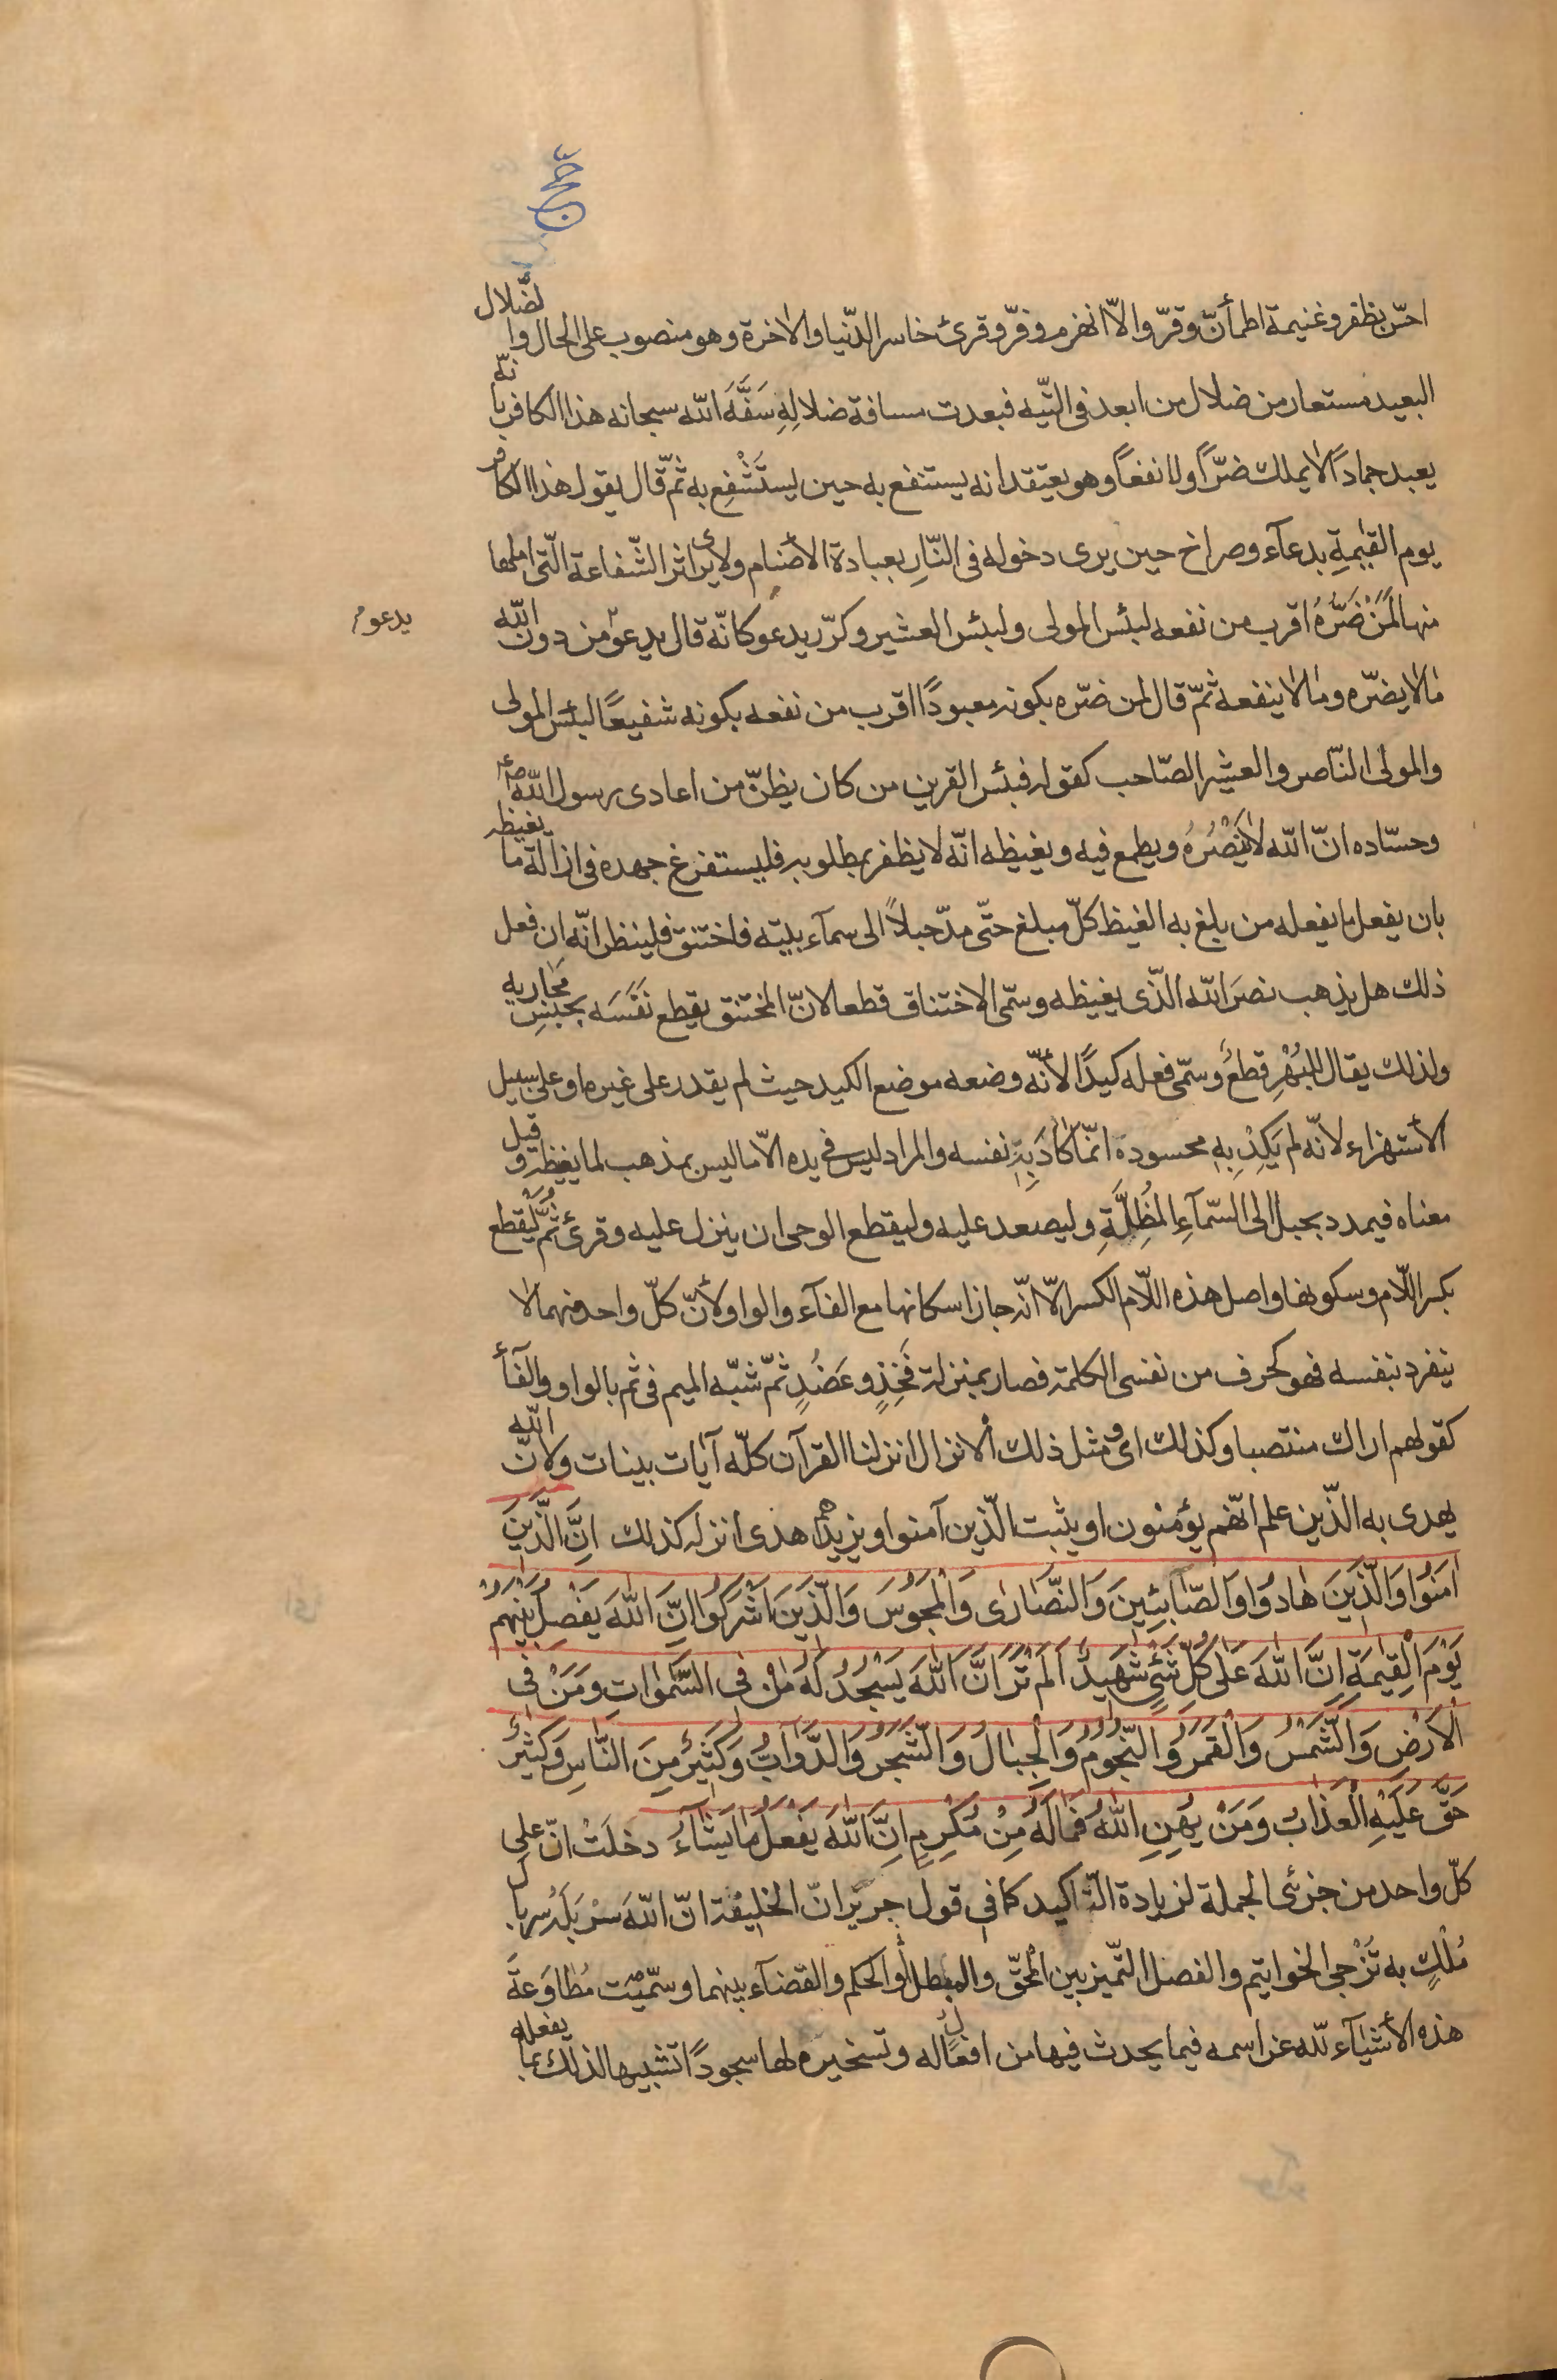 حجّ
احسّ بظفر وغنيمة اطمأنّ وقرّ والاّ انهزم وفرّ وقرئ خاسر الدّنيا والاخرة وهو منصوب على الحال والضّلال
البعيد مستعار من ضلال من ابعد فى التّيه فبعدت مسافة ضلالِهِ سَفَّهَ اللّه سبحانه هذا الكافر بانّه
يعبد جمادًا لا يملك ضرّاً ولا نفعاً وهو يعتقد انه يستنفع به حين يستَشْفِع به ثمّ قال يقول هذا الكافر
يوم القيٰمةِ بدعآء وصراخ حين يرى دخوله فى النّارِ بعبادة الأصنام ولا يرى اثر الشّفاعة الّتى املها
منها لَمَنْ ضَرُّهُ اقرب من نفعه لبئس المولى ولبئس العشير وكرّر يدعو كانّه قال يدعو من دون اللّه
يدعو م
مٰا لا يضرّه ومٰا لا ينفعه ثمّ قال لمن ضرّه بكونه معبودًا اقرب من نفعه بكونه شفيعًا لبئس المولى
والمولى النّاصر والعشير الصّاحب كقوله فبئس القرين من كان يظنّ من اعادى رسول اللّه ص
وحسّاده انّ اللّه لا يَنْصُرُهُ ويطمع فيه ويغيظه انّه لا يظفر بمطلوبه فليستفرغ جهده فى ازالة ما يغيظه
بان يفعل ما يفعله من بلغ به الغيظ كلّ مبلغ حتّى مدّ حبلاً الى سمآء بيته فاختنق فلينظر انّه ان فعل
ذلك هل يذهب نصرَ اللّه الّذى يغيظه وسمّى الاختناق قطعا لانّ المختنق يقطع نَفَسَه بحبسِ مَجٰاريه
ولذلك يقال للبُهْرِ قطعٌ وسمّى فعله كيدًا لأنّه وضعه موضع الكيد حيث لم يقدر على غيره او على سبيل
الأستهزاء لانّه لم يَكِدْ بِهِ محسودَهٗ انّمٰا كٰادَ بِهٖ نفسه والمراد ليس فى يده الاّ ما ليس بمذهب لما يغيظه وقيل
معناه فيمدد بحبل الى السّمآءِ المُظِلَّةِ وليصعد عليه وليقطع الوحى ان ينزل عليه وقرئ ثُمَّ لْيَقطع
بكسر اللّام وسكونها واصل هذه اللّام الكسر الاّ انّه جاز اسكانها مع الفآء والواو لأنّ كلّ واحد منهما لا
ينفرد بنفسه فهو كحرف من نفسى الكلمة فصار بمنزلة فَخِذٍ وعَضُدٍ ثمّ شبّه الميم فى ثم بالواو والفآء
كقولهم اراك منتصبا وكذلك اى ومثل ذلك ألانزال انزلنا القرآن كلّه آيات بينات ولانّ اللّه
يهدى به الّذين علم انّهم يؤمنون او يثبت الّذين آمنوا ويزيدهم هدى انزله كذلك اِنَّ الَّذينَ
امَنُوا وَالَّذينَ هٰادوُا وَالصّٰابئِينَ وَالنَّصٰارىٰ وَالْمَجوُسَ وَالَّذينَ اَشْرَكوُا اِنَّ اللّٰهَ يَفْصِلُ بَيْنَهُمْ
يَوْمَ الْقِيٰمَةِ اِنَّ اللّٰهَ عَلىٰ كُلِّ شَئٍ شَهيدٌ اَلَمْ تَرَ اَنَّ اللّٰهَ يَسْجُدُ لَهُ مَنْ فِى السَّمٰوٰاتِ وَمَنْ فِى
الْاَرْضِ وَالشَّمْسُ وَالْقَمَرُ وَالنُّجُومُ وَالْجِبٰالُ وَالشَّجَرُ وَالدَّوٰابُّ وَكَثيرٌ مِنَ النّٰاسِ وَكَثيرٌ
حَقَّ عَلَيْهِ الْعَذٰابُ وَمَنْ يُهِنِ اللّٰهُ فَمٰا لَهُ مِنْ مُكْرِمٍ اِنَّ اللّٰهَ يَفْعَلُ مٰا يَشٰآءُ دخلَتْ انّ على
كلّ واحد من جزئى الجملة لزيادة التّاكيد كما فى قول جرير انّ الخليفة انّ اللّهَ سَرْبَلَهُ سربال
مُلْكٍ به تُزْجى الخواتيم والفصل التّميز بين الْمُحقّ والمبطل أو الحكم والقضآء بينهما وسمّيْت مُطٰاوَعةَ
هذه الأشيٰآء للّه عز اسمه فيما يحدث فيها من افعاله وتسخيره لها سجودًا تشبيها لذلك بما يفعله